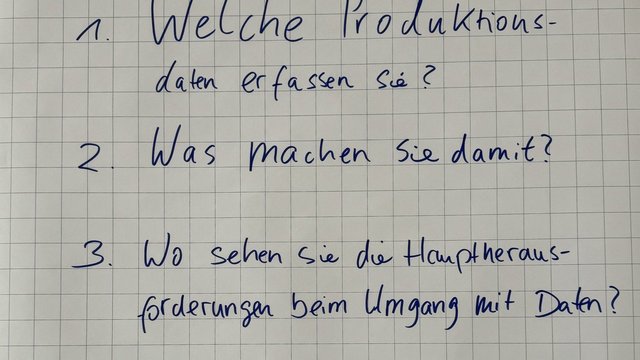 1. Welche Produktions-
daten erfassen sie?
2. Was machen Sie damit?
3. Wo sehen Sie die Hauptheraus-
forderungen beim Umgang mit Daten?